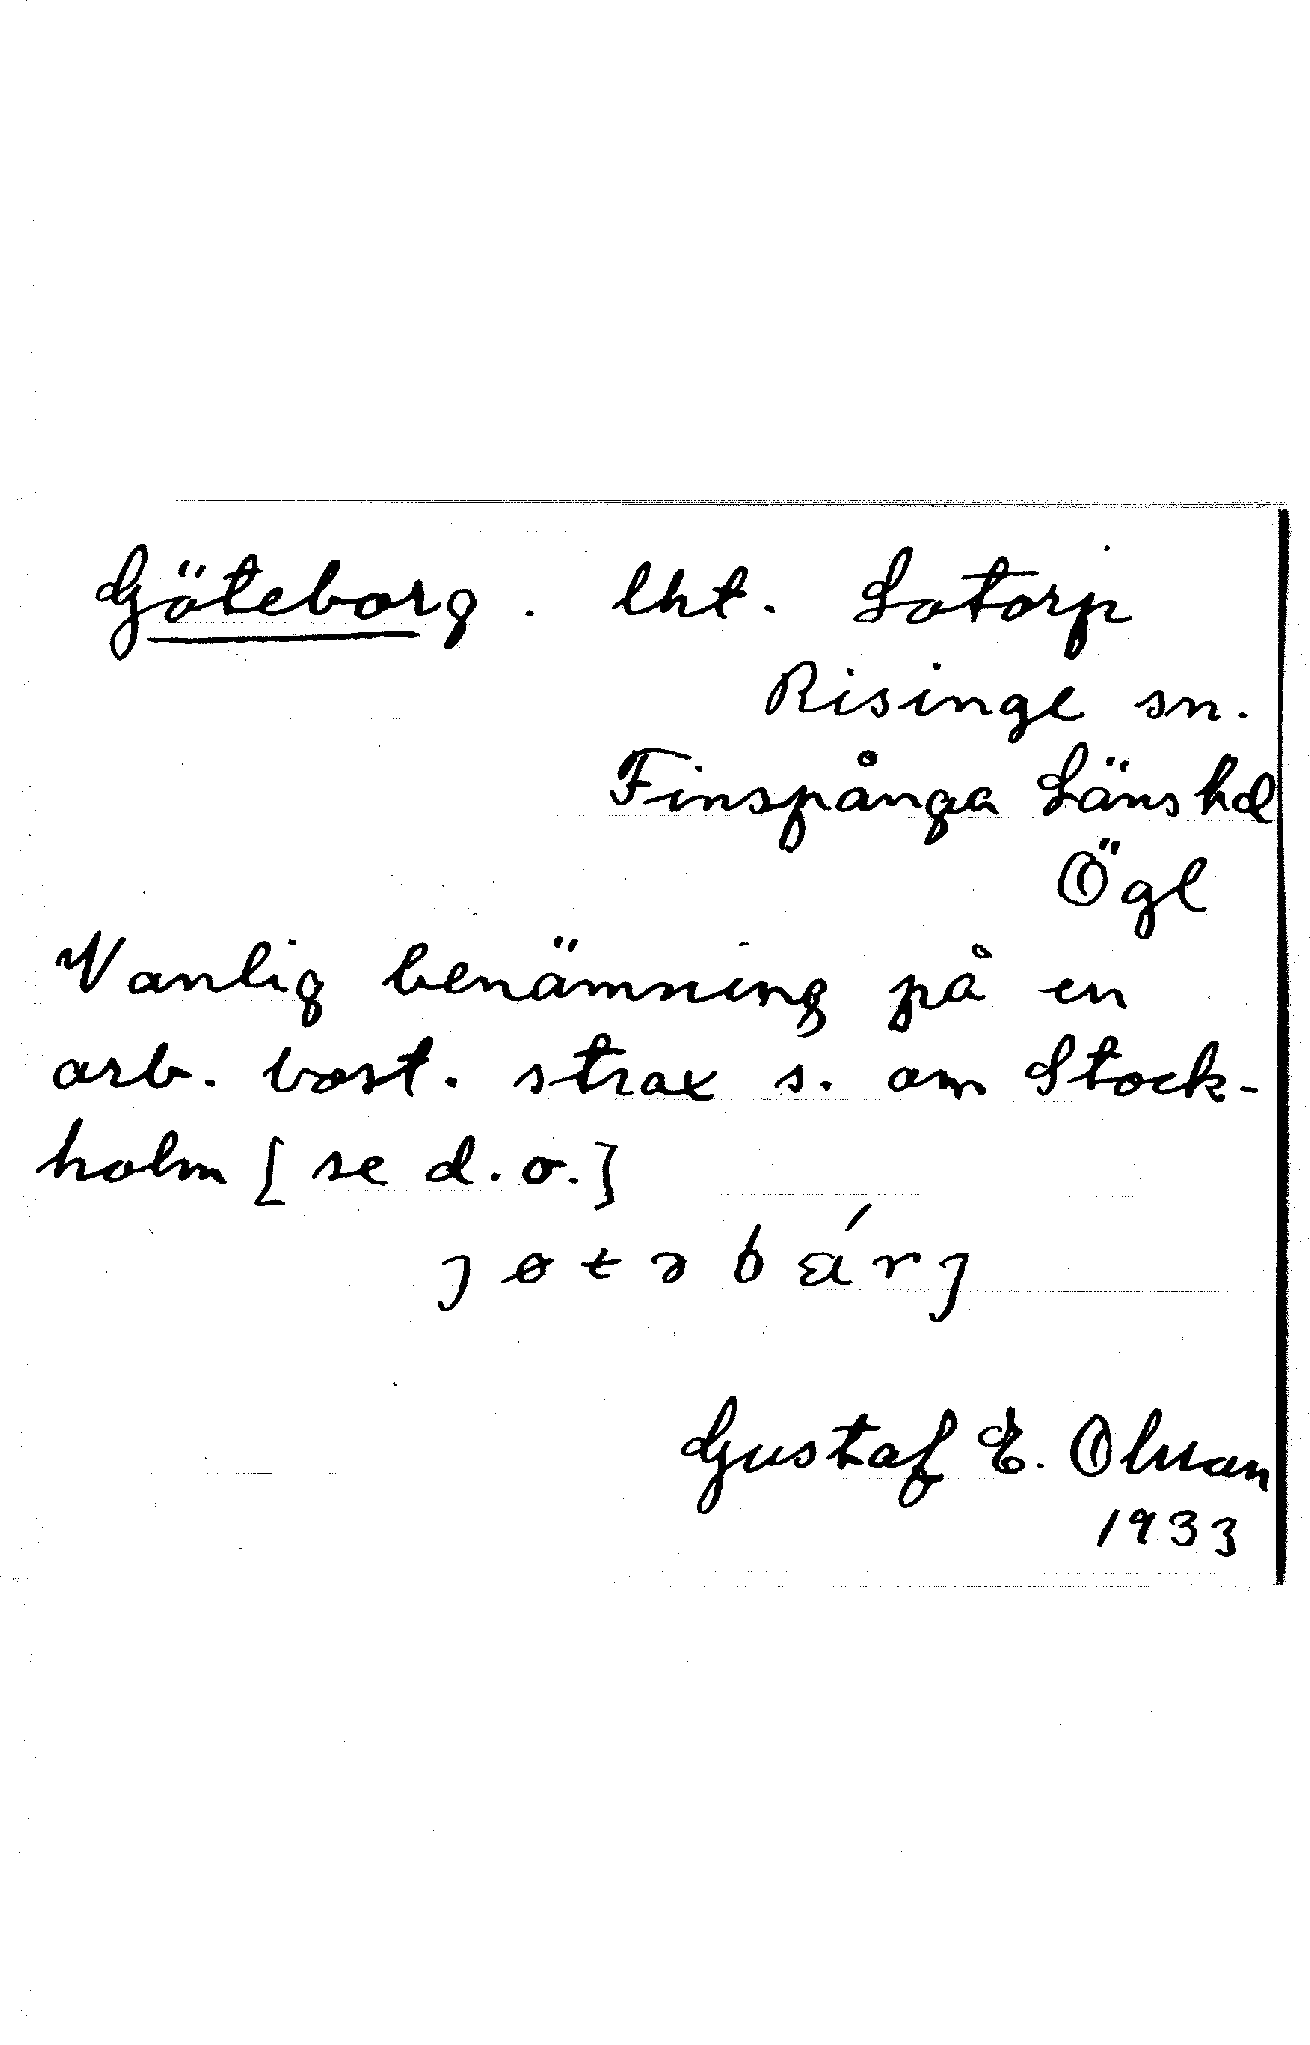 Göteborg. lht. Lotorp
Risinge sn.
Finspånga Länshd
Ögl
Vanlig benämning på en
arb. bost. strax s. om Stock-
holm [se d.o.]
ȷøtəbárȷ
Gustaf E. Olsson
1933